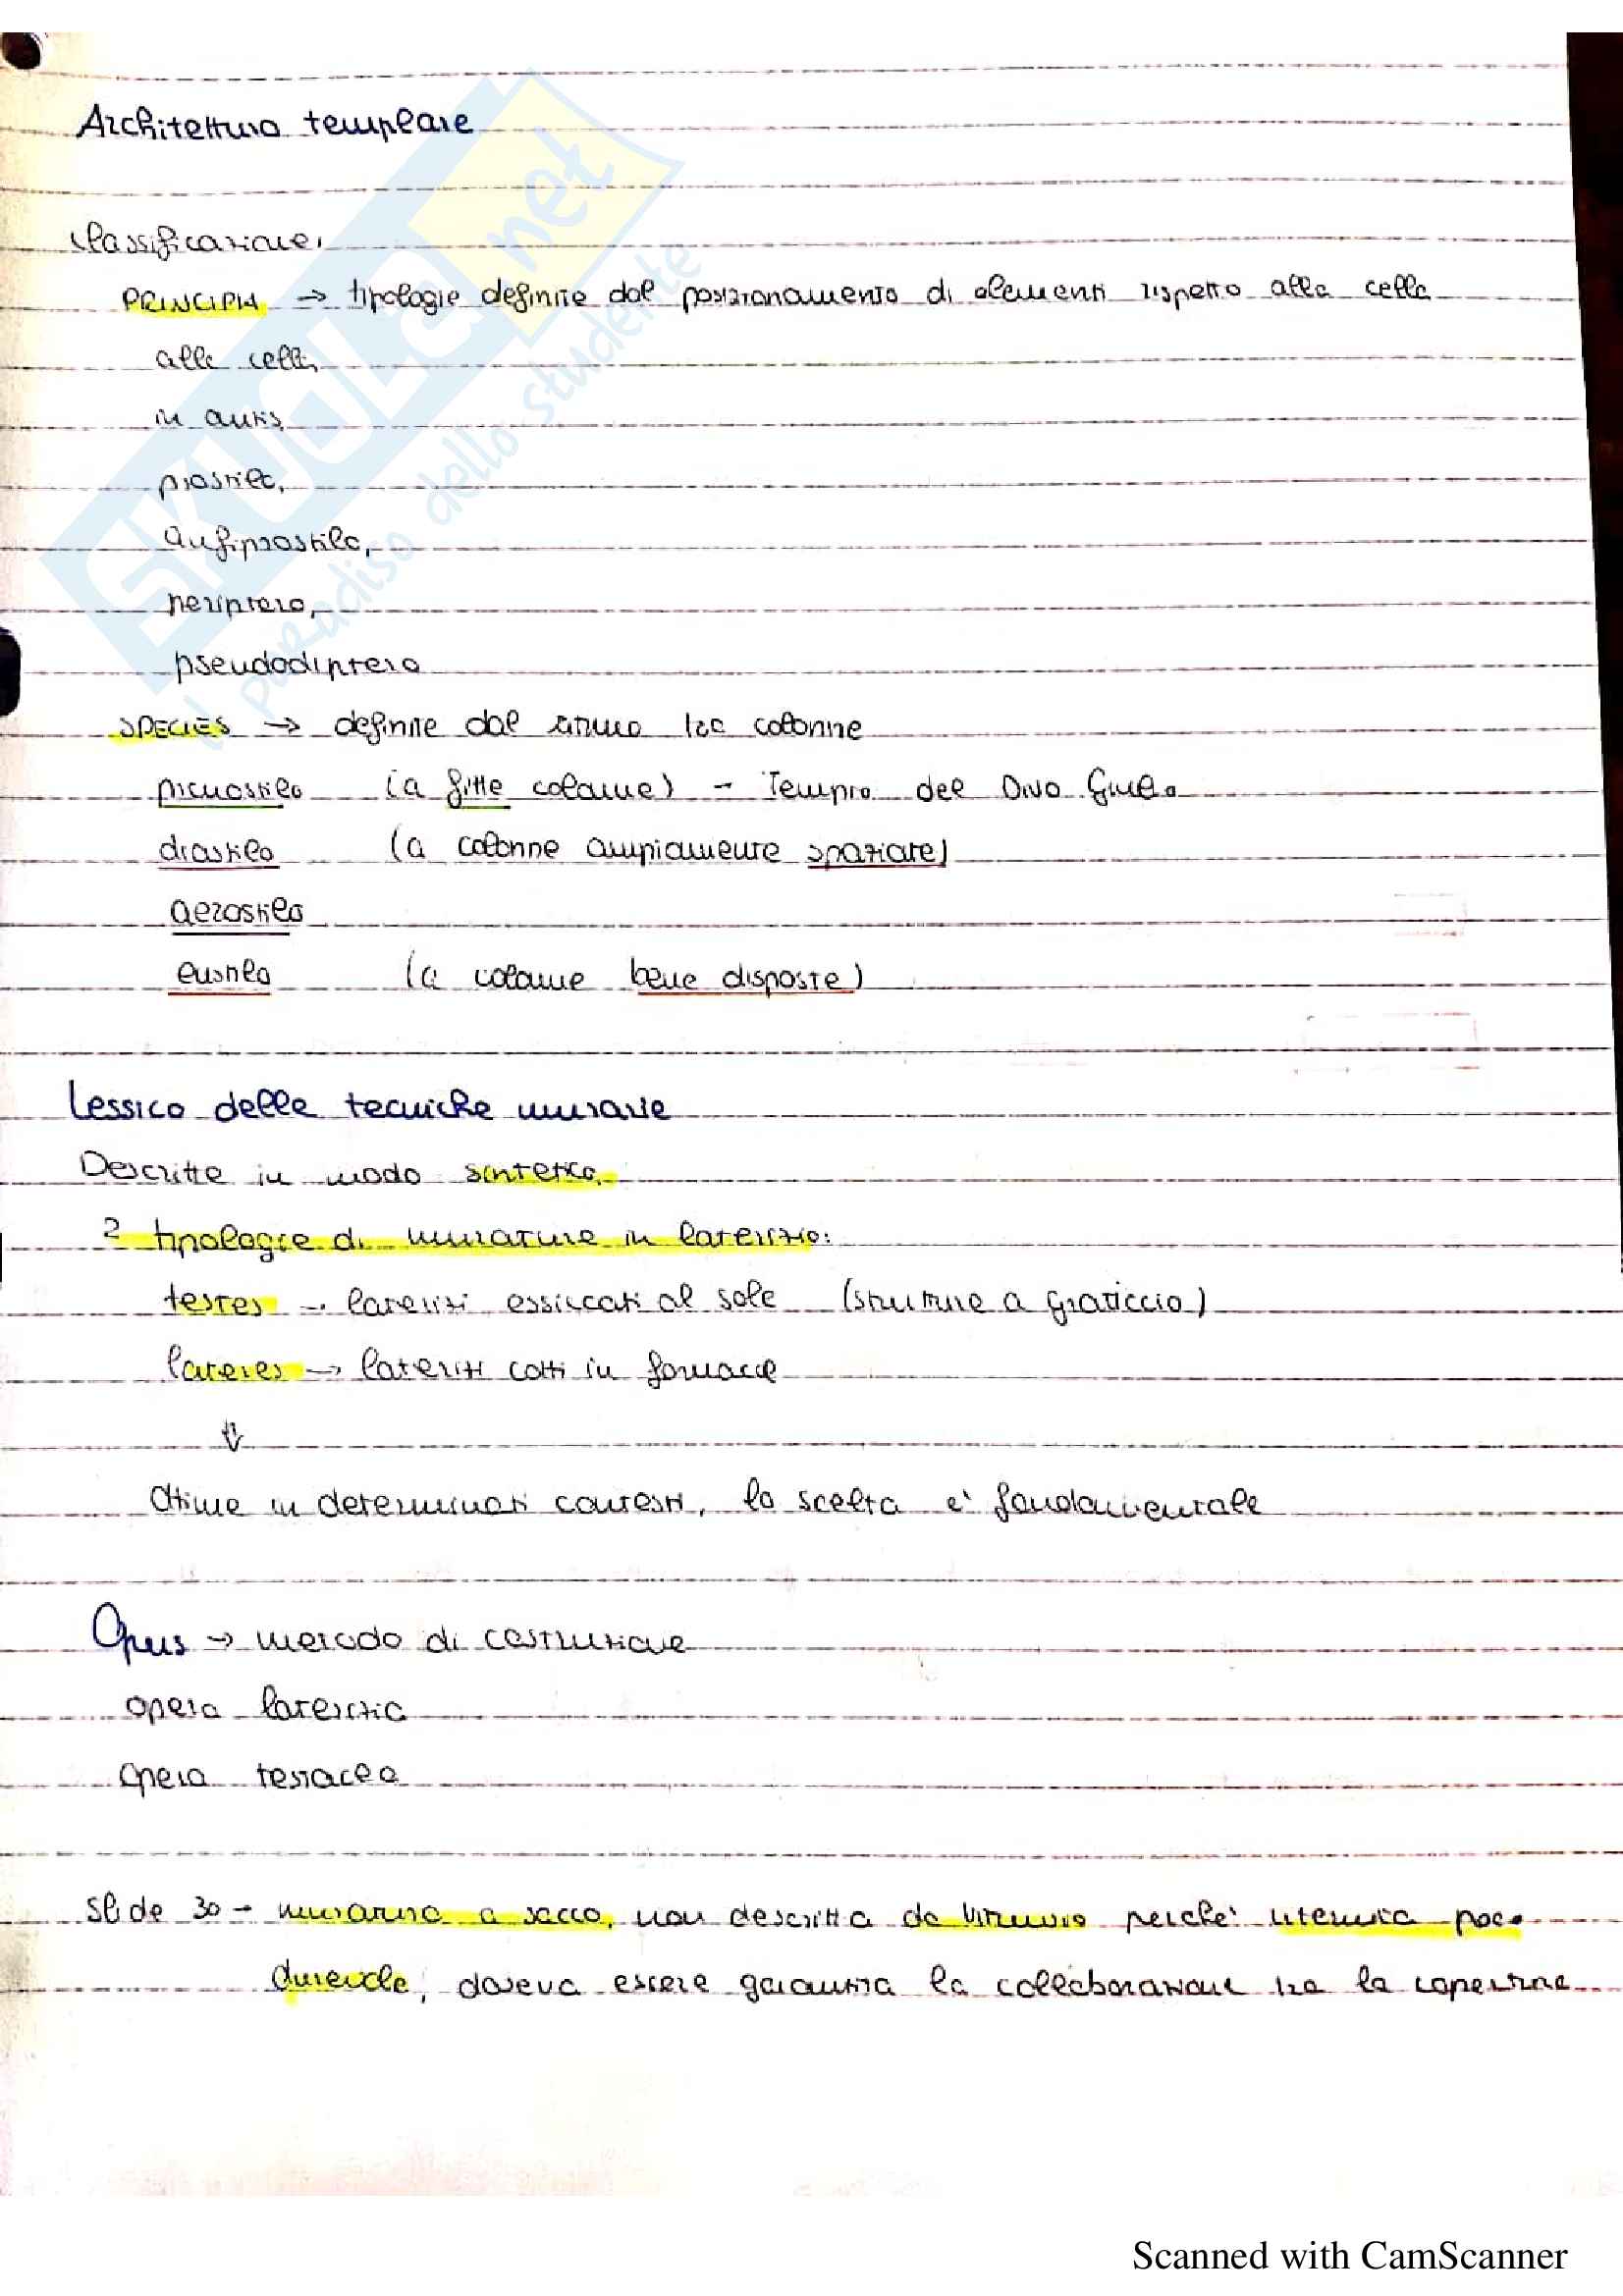 Architettura templare
Classificazione,
PRINCIPIA → tipologie definite dal posizionamento di elementi rispetto alla cella
alla cella,
in antis,
prostilo,
anfiprostilo,
periptero,
pseudodiptero
SPECIES → definite dal ritmo tra colonne
picnostilo (a fitte colonne) - Tempio del Divo Giulio
diastilo (a colonne ampiamente spaziate)
aerostilo
eustilo (a colonne bene disposte)
Lessico delle tecniche murarie
Descritte in modo sintetico,
2 tipologie di murature in laterizio:
testes → laterizi essiccati al sole (strutture a graticcio)
lateres → laterizi cotti in fornace
↓
Ottime in determinati contesti, la scelta è fondamentale
Opus → metodo di costruzione
opera laterizia
opera testacea
Slide 30 - muratura a sacco, non descritta da Vitruvio perché ritenuta poco
durevole, doveva essere garantita la collaborazione tra le copertine
SKUOLA.net
il paradiso dello studente
Scanned with CamScanner